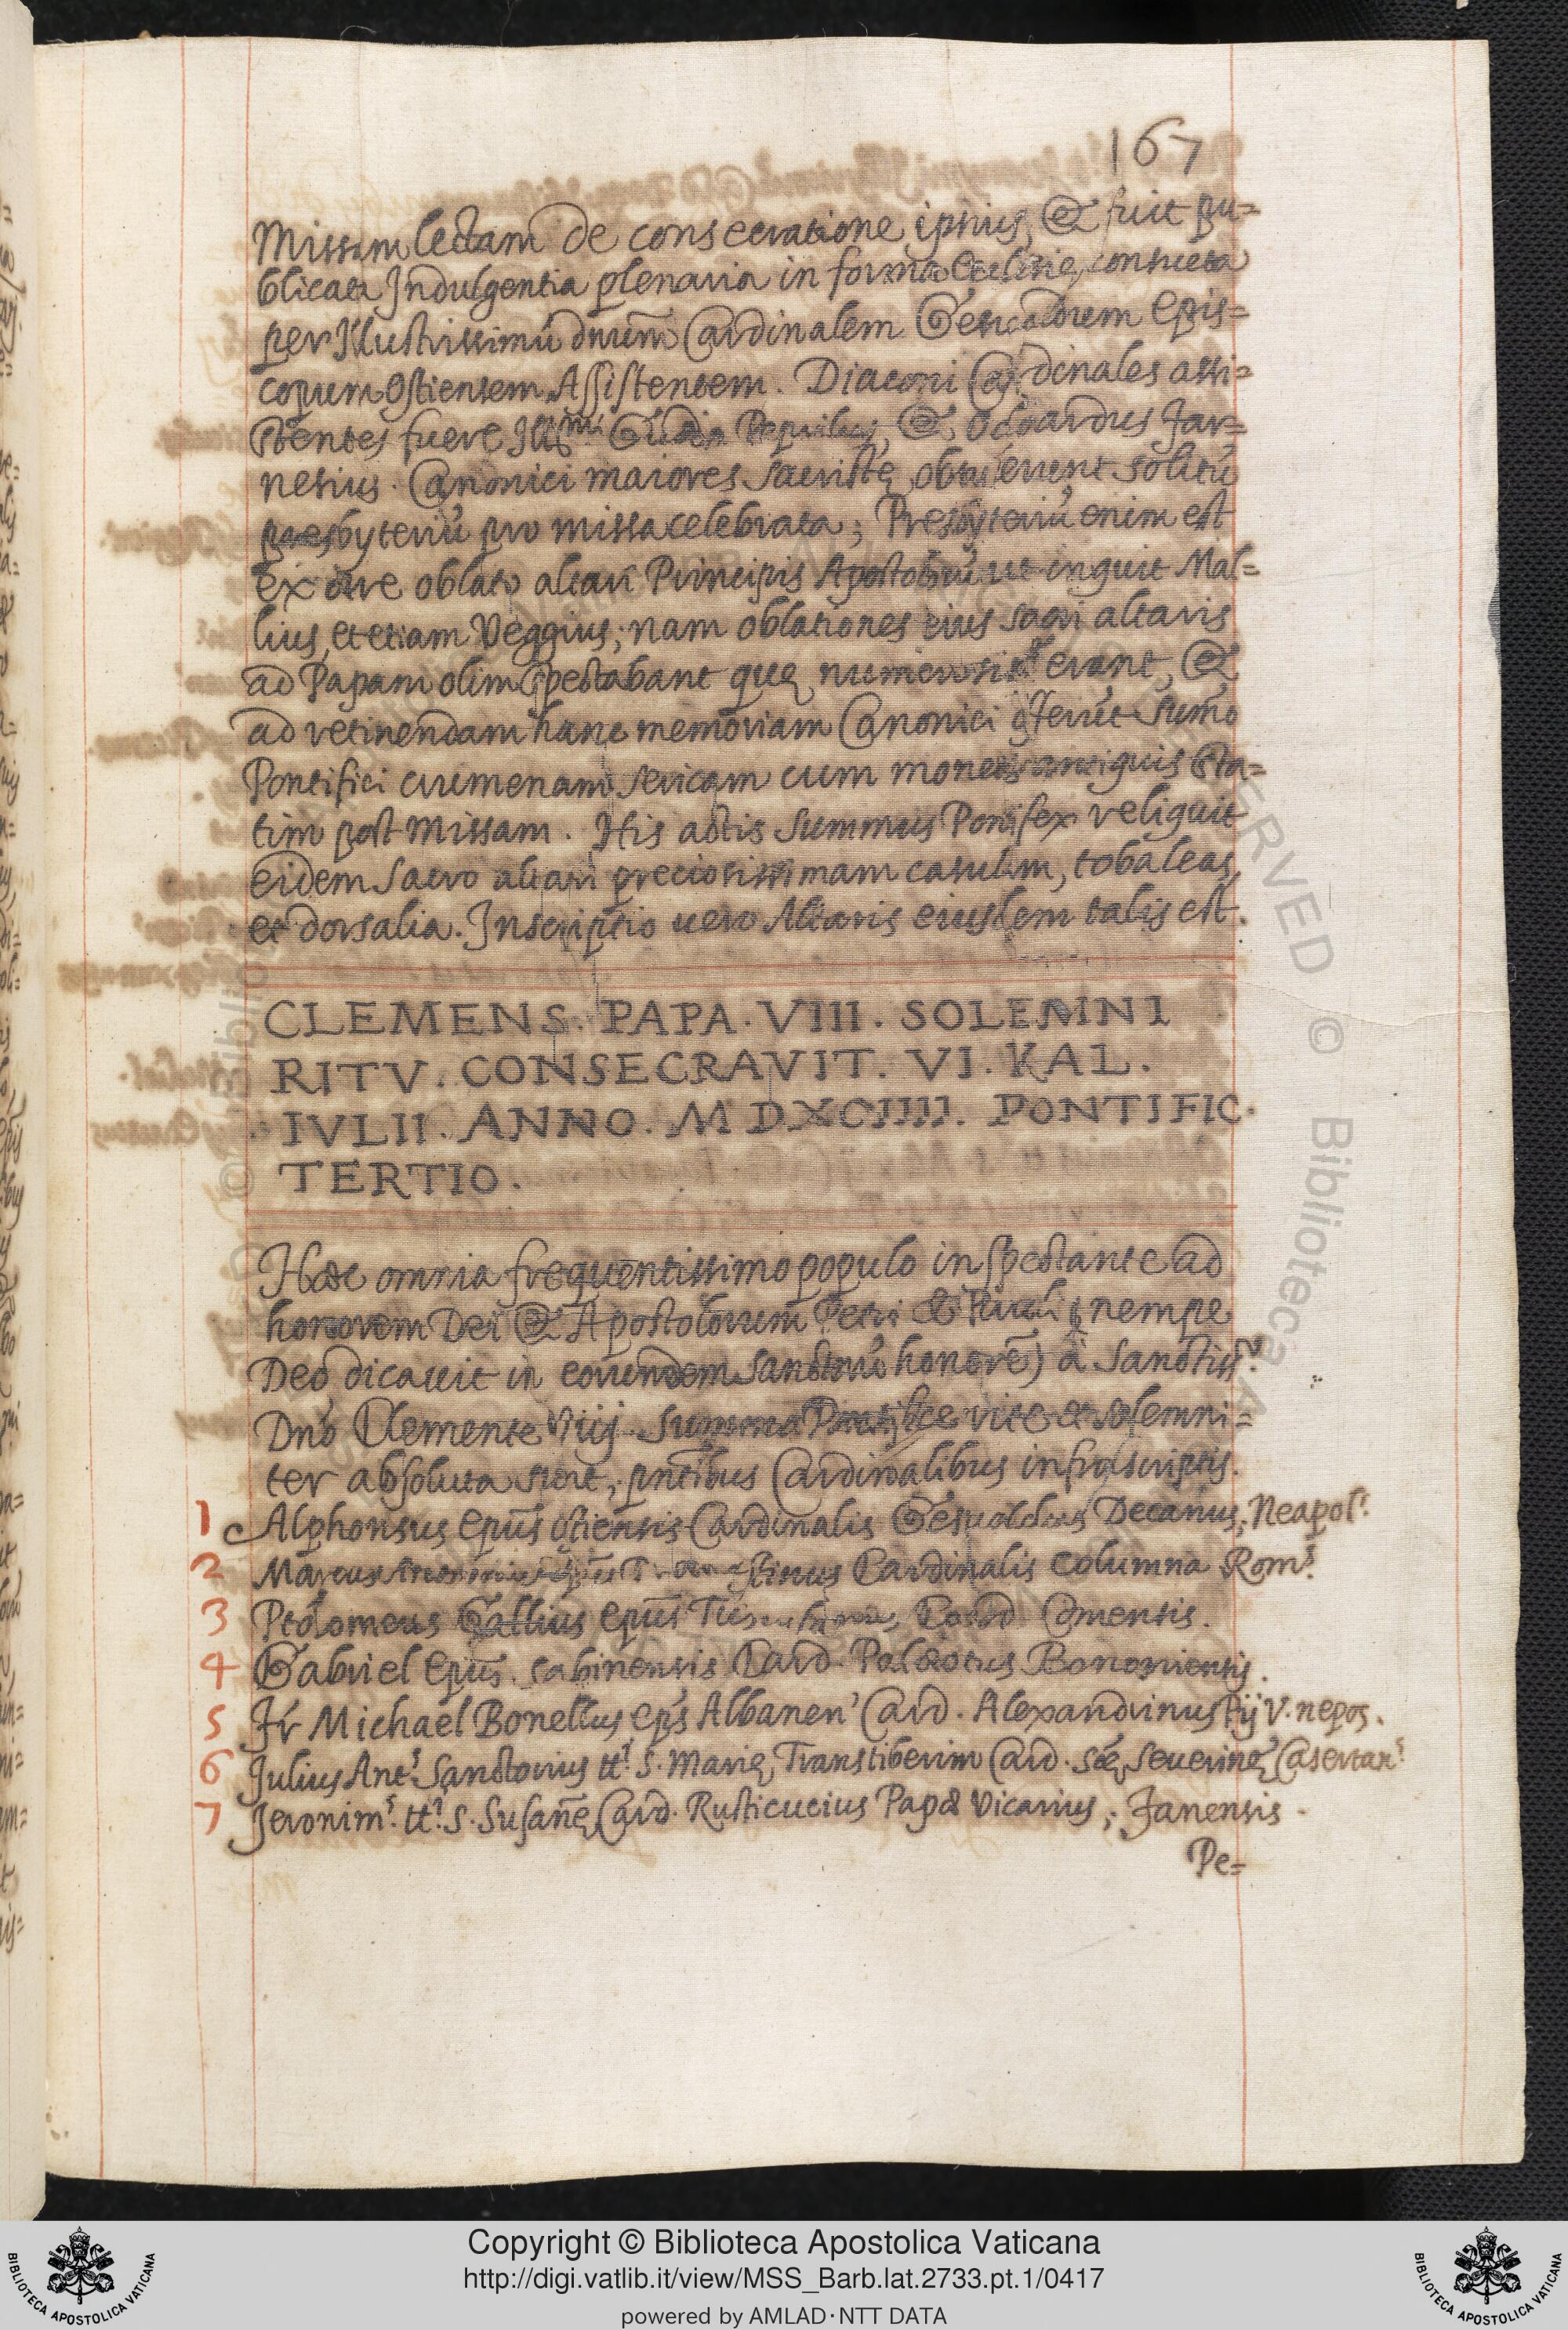 167
Missam lectam de consecratione ipsius, & fuit pu=
blicata Indulgentia plenaria in forma Ecclesię consueta
per Illustrissimũ dnum̃ Cardinalem Gesualdum Epis=
copum Ostiensem Assistentem. Diaconi Cardinales assi=
stentes fuere Ill.mi Guido Pepulus, & Odoardus Far=
nesius. Canonici maiores sacristę obtulerunt solitũ
presbyteriũ pro missa celebrata; Presbyteriũ enim est
ex ære oblato altari Principis Apostolorũ ut inquit Mal=
lius, et etiam Veggius; nam oblationes eius sacri altaris
ad Papam olim spectabant quę numerosissę erant, &
ad retinendam hanc memoriam Canonici offerũt Sum̃o
Pontifici crumenam sericam cum monetis antiquis sta=
tim post Missam. His actis Summus Pontifex reliquit
eidem sacro altari preciosissimam casulam, tobaleas,
et dorsalia. Inscriptio uero Altaris eiusdem talis est.
CLEMENS. PAPA. VIII. SOLEMNI
RITV. CONSECRAVIT. VI. KAL.
IVLII. ANNO. MDXCIIII. PONTIFIC.
TERTIO.
Hæc omnia frequentissimo populo inspectante ad
honorem Dei & Apostolorum Petri & Pauli (nempe
Deo dicauit in eorundem sanctorũ honorẽ) à Sanctiss.o
Dn̄o Clemente Viij. Summo Pontifice rite et solemni=
ter absoluta sunt, pn̄tibus Cardinalibus infrascriptis.
1 Alphonsus ep̄us Ostiensis Cardinalis Gesualdus Decanus, Neapol.s
2 Marcus Cardinalis Columna Rom.s
3 Ptolomeus Gallius ep̄us Tusculanus, Card. Comensis.
4 Gabriel ep̄us Sabinensis Card. Paleotus Bononiensis.
5 Fr̄ Michael Bonellus, ep̄s Albanen' Card. Alexandrinus Pij V. nepos.
6 Julius Ant.s Sanctorius tt.s S. Marię Transtiberim Card. S.ę Seuerinę, Casertan.s
7 Jeronim.s tt.s S. Susan̄ę Card. Rusticucius Papæ Vicarius; Fanensis.
Pe=
Copyright © Biblioteca Apostolica Vaticana
http://digi.vatlib.it/view/MSS_Barb.lat.2733.pt.1/0417
powered by AMLAD·NTT DATA
BIBLIOTECA APOSTOLICA VATICANA
BIBLIOTECA APOSTOLICA VATICANA